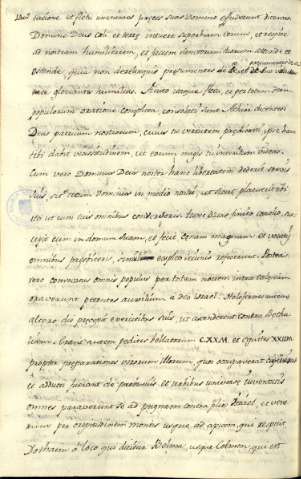 tatione et fletu unanimes preces suas Domino effuderunt dicentes
Domine Deus coeli et terræ intuere superbiam eorum, et respice
ad nostram humilitatem, et faciem sanctorum tuorum attende et
ostende, quia non derelinquis præsumentes de te, et
humilias. Finito itaque fletu, et per totam diem
populorum oratione completa, consolati sunt Achior dicentes
Deus patrum nostrorum, cuius tu virtutem prædicasti, ipse hanc
tibi dabit vicissitudinem, ut eorum magis tu interitum videas.
Cum vero Dominus Deus noster hanc libertatem dederit servis
suis, sit et tecum Dominus in medio nostri, ut sicut placuerit tibi
ita ut cum tuis omnibus converseris. Tunc Ozias finito consilio, sus
cepit eum in domum suam, et fecit cenam magnam et vocatis
omnibus presbiteris, simul expleto ieiunio refecerunt. Postea
vero convocatus omnis populus per totam noctem intra ecclesiam
oraverunt petentes auxilium a Deo Israel. Holofernes autem
altera die præcepit exercitibus suis, ut ascenderent contra Bethu
liam. Erant autem pedites bellatorum CXXM. et equites XXIIM
præter præparationes virorum illorum, quos occupaverat captivitas
et adducti fuerant de provinciis et urbibus universæ iuventutis
omnes paraverunt se ad pugnam contra filios Israel, et vene
runt per crepidinem montis usque ad apicem, qui respicit
Dothaim a loco qui dicitur Belma, usque Celmon, qui est